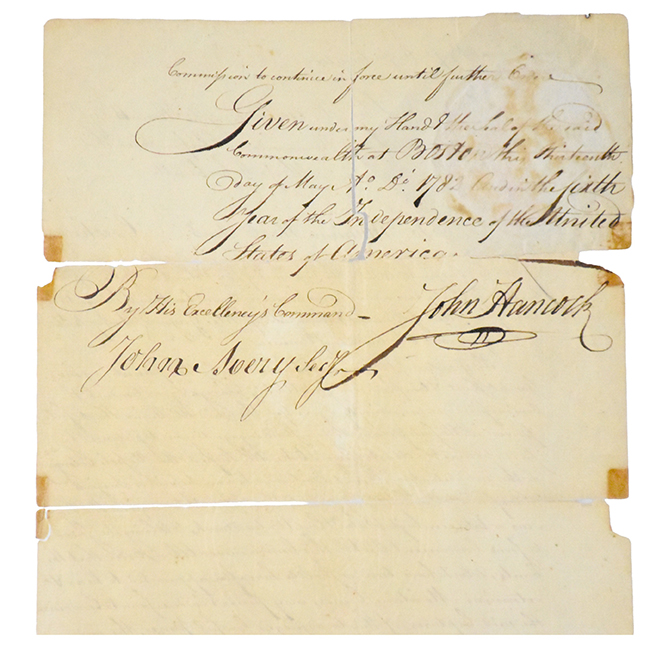 Commission to continue in force until further
Given under my Hand & the Seal of the said
Commonwealth at Boston this thirteenth
day of May Ao. Di. 1782 And in the sixth
Year of the Independence of the United
States of America.
By His Excellency's Command - John Hancock
John Avery Secy